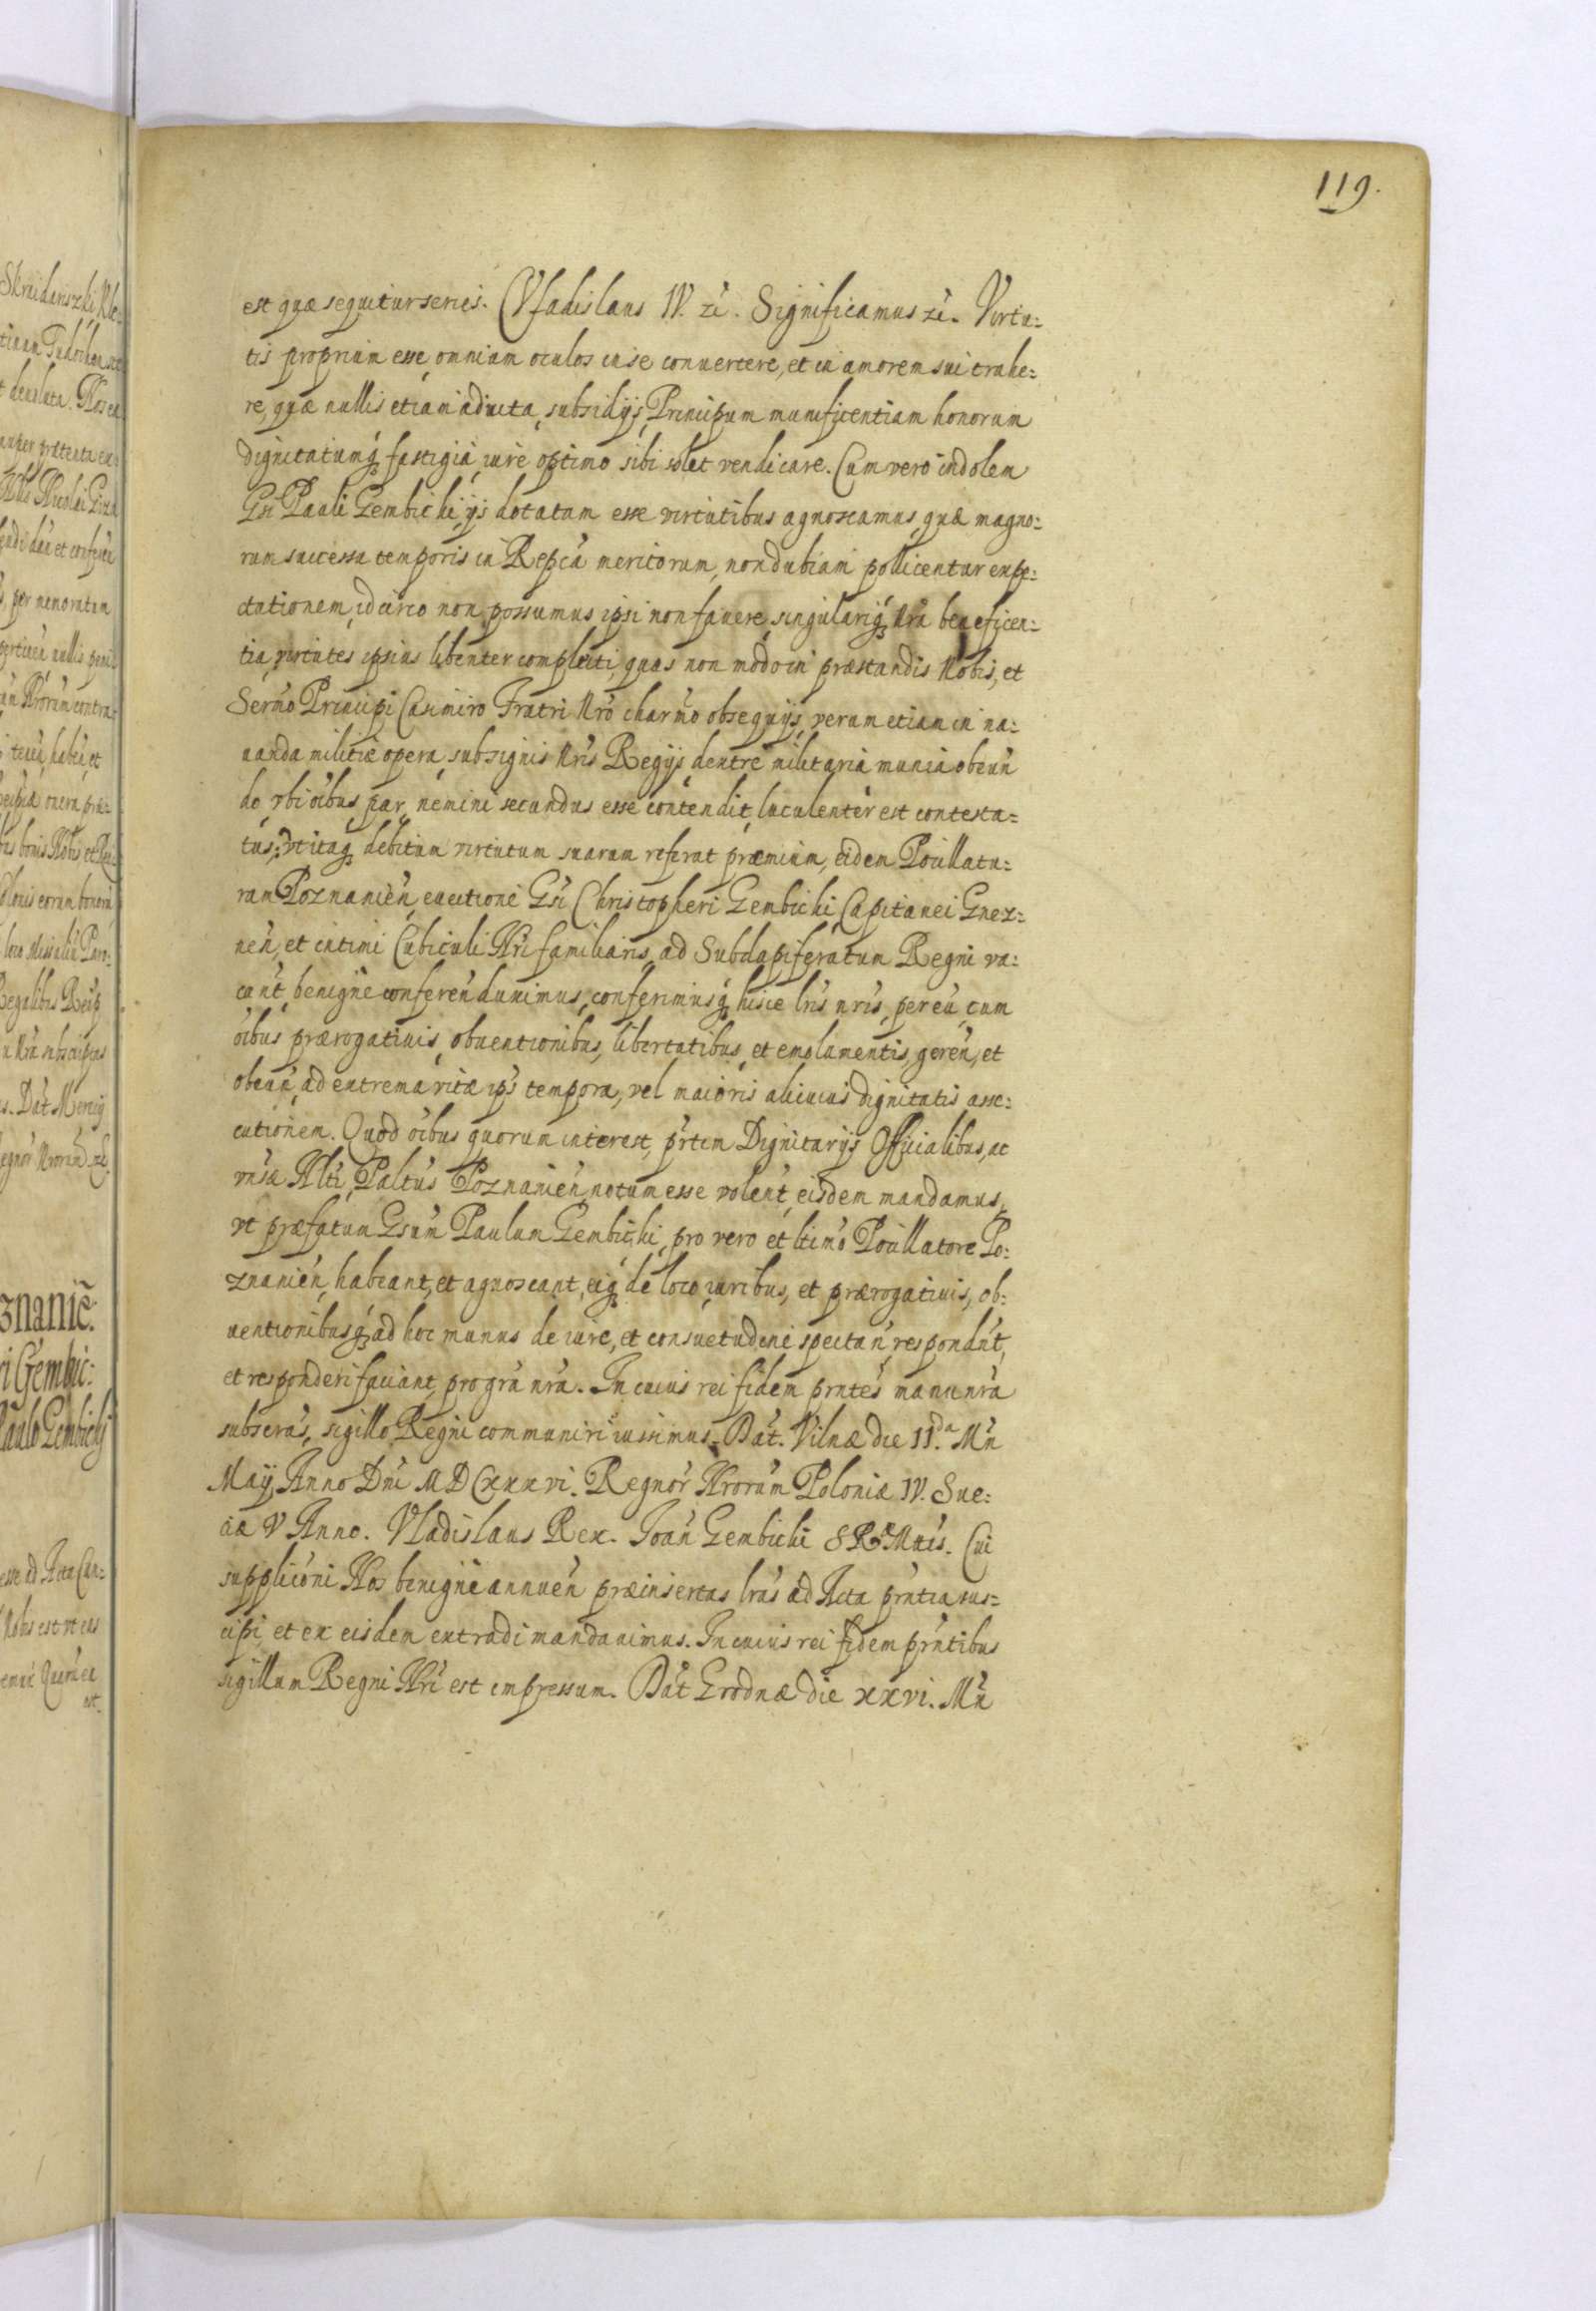 119.
est quæ sequitur series. Vladislaus IV. zc. Significamus zc. Virtu=
tis proprium esse, omnium oculos in se convertere, et in amorem sui trahe=
re, quæ nullis etiam adiuta subsidijs, Principum munificentiam honorum
dignitatumq; fastigia, iure optimo sibi solet vendicare. Cum vero indolem
Gsi Pauli Gembicki ijs dotatam esse virtutibus agnoscamus, quæ magno=
rum successu temporis in Repca meritorum, non dubiam pollicentur expe=
ctationem, idcirco non possumus ipsi non favere, singulariq; Nra beneficen=
tia, virtutes ipsius libenter complecti, quas non modo in præstandis Nobis, et
Sermo Principi Casimiro Fratri Nro charmo obsequijs, verum etiam in na=
uanda militiæ opera, sub signis Nris Regijs dextre militaria munia obeun
do, vbi oibus par, nemini secundus esse contendit, luculenter est contesta=
tus: vt itaq; debitum virtutum suarum referat præmium, eidem Pocillatu=
ram Poznanien, ex Gsi Christopheri Gembicki Capitanei Gnez=
nen, et intimi Cubiculi Nri familiaris, ad Subdapiferatum Regni va=
cant, benigne conferen duximus, conferimusq; hisce lris nris, per eu, cum
oibus prærogatiuis, obuentionibus, libertatibus, et emolumentis, geren, et
obeun, ad extrema vitæ ips tempora, vel maioris alicuius dignitatis asse=
cutionem. Quod oibus quorum interest, prtim Dignitarijs Officialibus, ac
vnisu Nlti, Paltus Poznanien, notum esse volent, eisdem mandamus,
vt præfatum Gsum Paulum Gembicki, pro vero et ltimo Pocillatore Po=
znanien, habeant, et agnoscant, eiq; de loco, iuribus, et prærogatiuis, ob=
uentionibusq; ad hoc munus de iure, et consuetudine spectan, respondnt,
et responderi faciant, pro gra nra. In cuius rei fidem prntes manu nra
subscras, sigillo Regni communiri iussimus. Dat. Vilnæ die 11.da Mn
Maij Anno Dni MDCxxxvi. Regnor Nrorum Poloniæ IV. Sue=
ciæ V Anno. Vladislaus Rex. Joan Gembicki SRMttis. Cui
supplicioni Nos benigne annuen præinsertas lras ad Acta prntia sus=
cipi, et ex eisdem extradi mandauimus. In cuius rei fidem prntibus
sigillum Regni Nri est impressum. Dat Grodnæ die xxvi. Mn